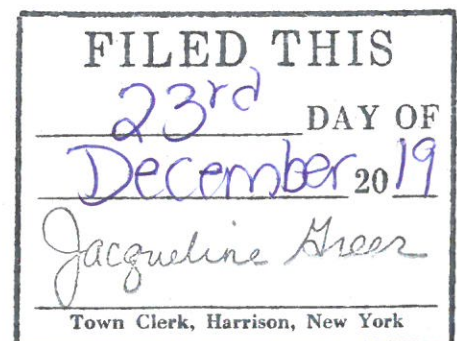 FILED THIS
23rd DAY OF
December 2019
Jacqueline Greer
Town Clerk, Harrison, New York